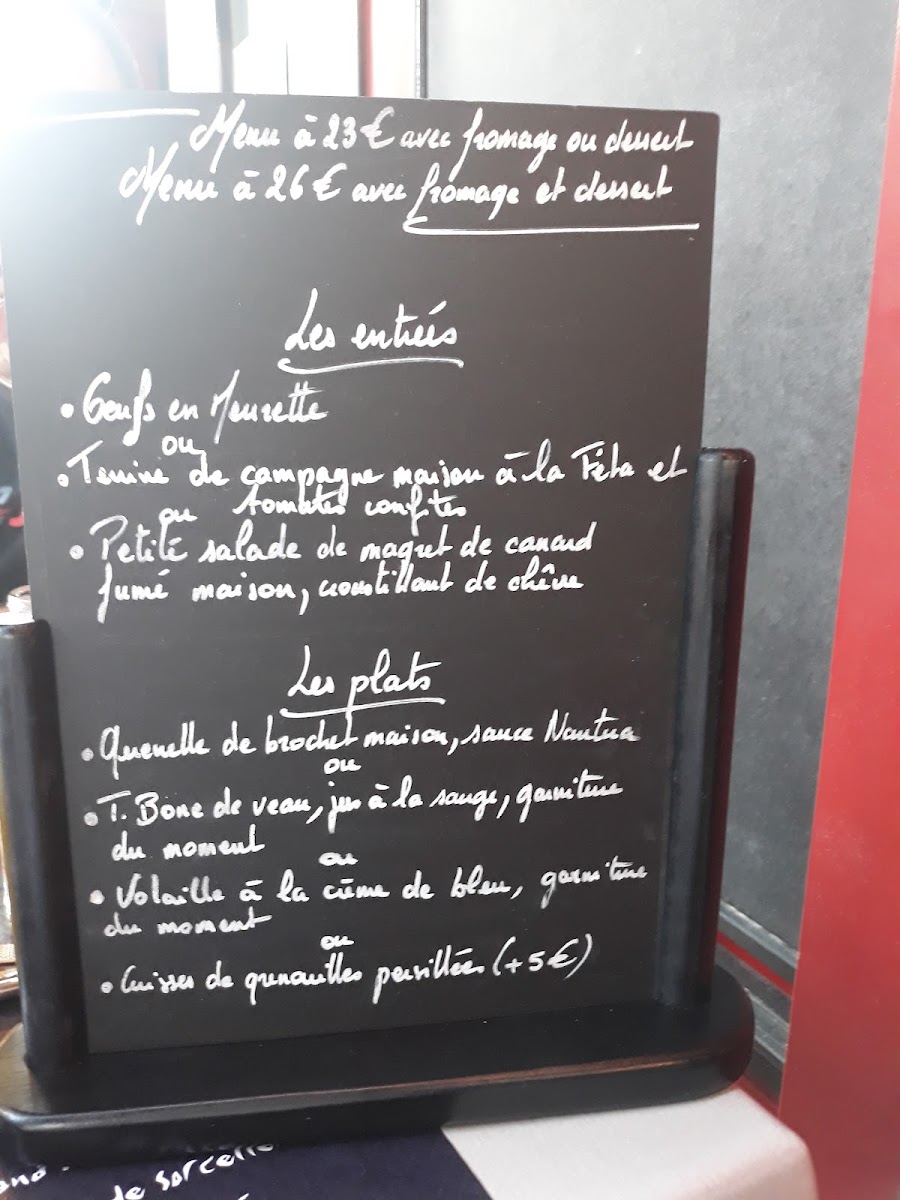 Menu à 23€ avec fromage ou dessert
Menu à 26€ avec fromage et dessert
Les entrées
• Oeufs en Meurette
ou
• Terrine de campagne maison à la Féta et
ou tomates confites
• Petite salade de magret de canard
fumé maison, croustillant de chèvre
Les plats
• Quenelle de brochet maison, sauce Nantua
ou
• T. Bone de veau, jus à la sauge, garniture
du moment
ou
• Volaille à la crème de bleu, garniture
du moment
ou
• Cuisses de grenouilles persillées (+5€)
de sorcelle